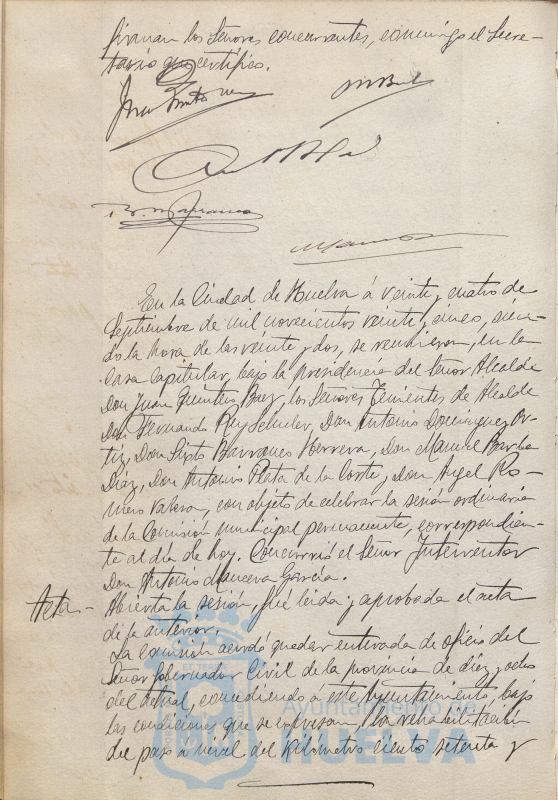 firman los Señores concurrentes, conmigo el Secre-
tario que certifico.
En la Ciudad de Huelva á veinte y cuatro de
Septiembre de mil novecientos veinte y cinco, sien-
do la hora de las veinte y dos, se reunieron, en la
Casa Capitular, bajo la presidencia del Señor Alcalde
Don Juan Quintero Baez, los Señores Tenientes de Alcalde
Don Fernando Rey Don Antonio Dominguez Or-
tiz, Don Sixto Barranco Herrera, Don Manuel Barba
Díaz, Don Antonio Plata de la Corte y Don Angel Ro-
mero Valera, con objeto de celebrar la sesión ordinaria
de la Comisión municipal permanente, correspondien-
te al día de hoy. Concurrió el Señor Interventor
Don Antonio García.
Acta.- Abierta la sesión, fué leida y aprobada el acta
de la anterior.
La Comisión acordó quedar enterada de oficio del
Señor Gobernador Civil de la provincia de diez y ocho
del actual, concediendo á este Ayuntamiento, bajo
las condiciones que se expresan, la rehabilitación
del paso a nivel del kilómetro ciento setenta y
Ayuntamiento de
HUELVA